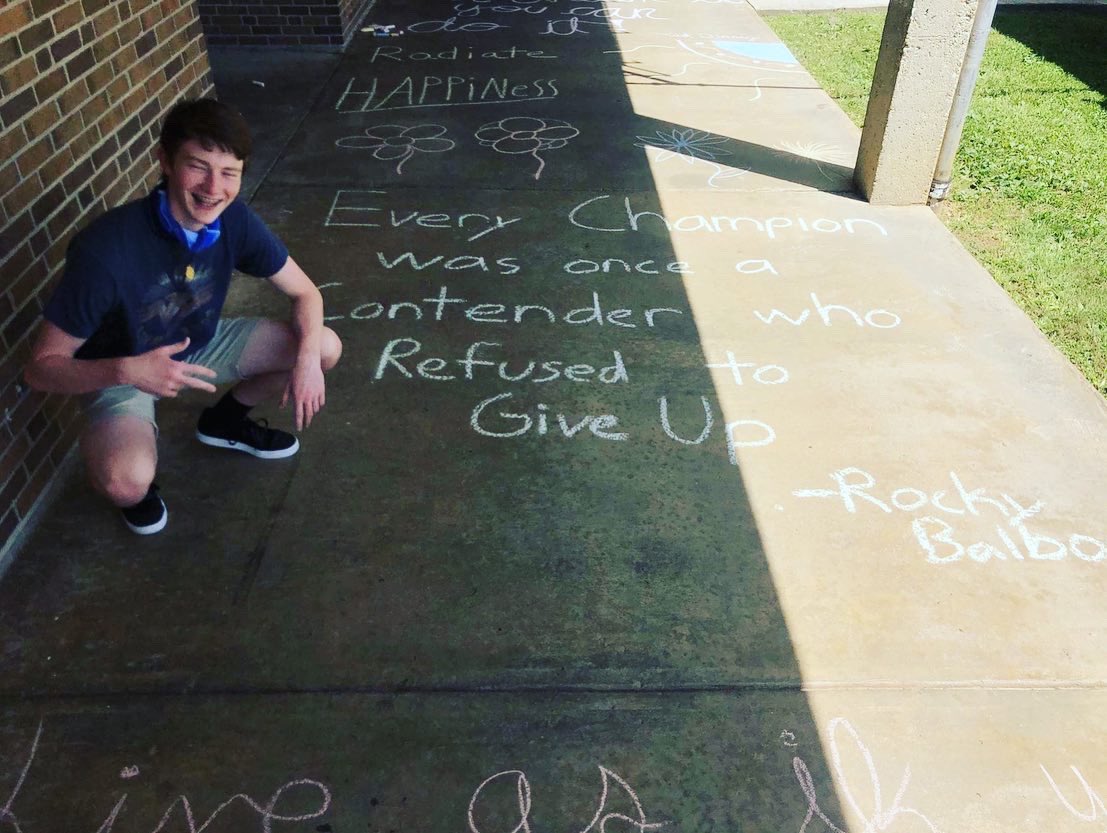 you can
do it!
Radiate
HAPPiNess
Every Champion
was once a
Contender who
Refused to
Give Up
-Rocky
Balbo
as